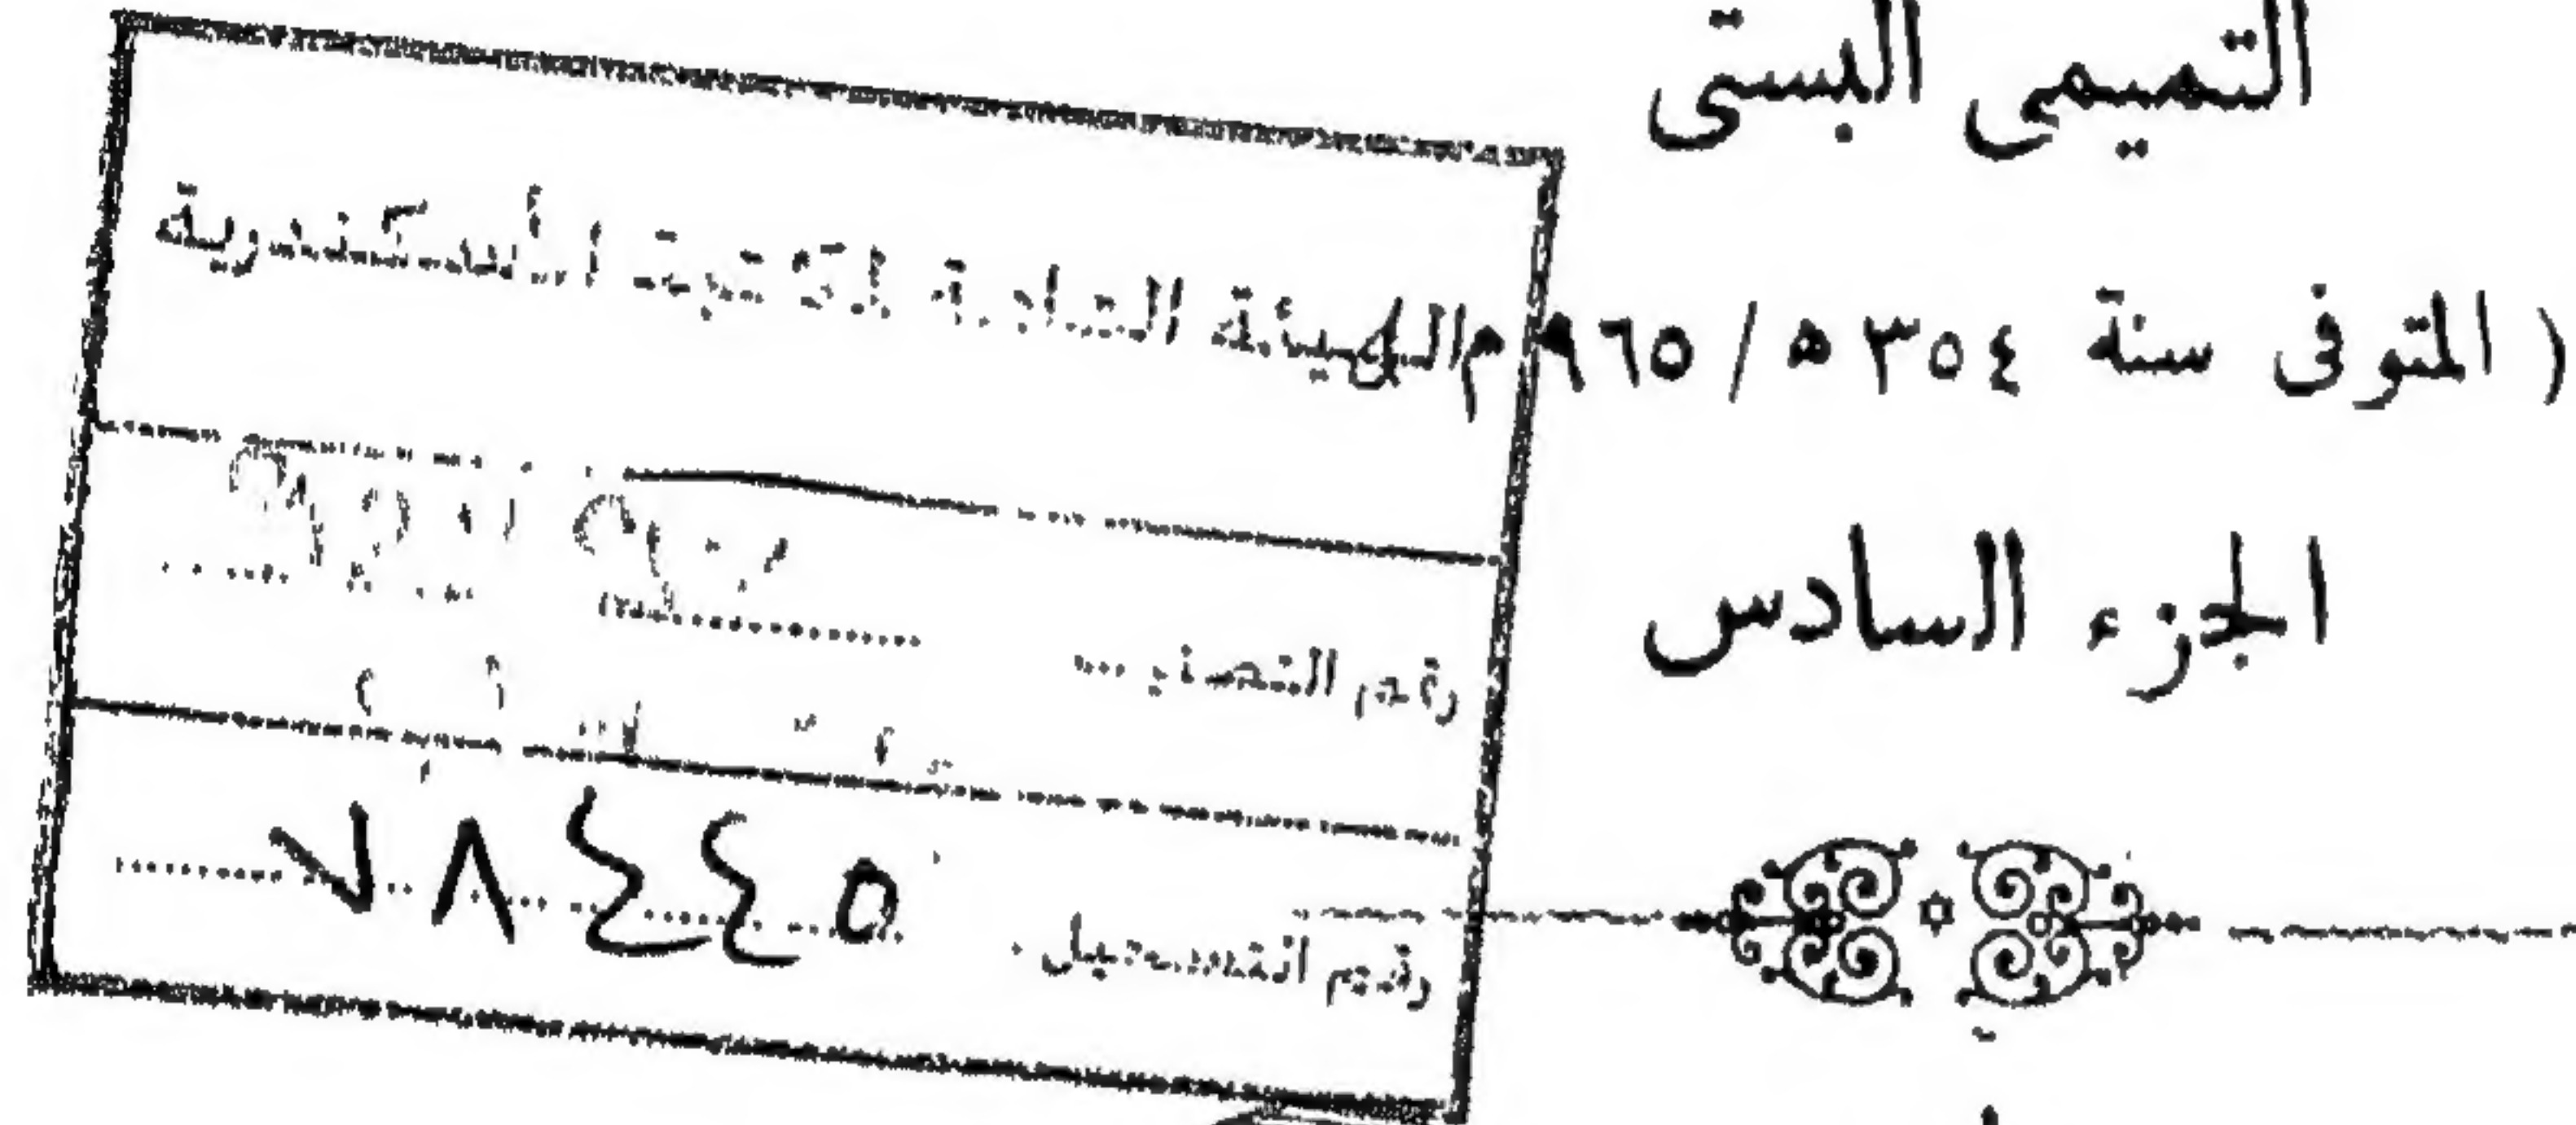 التميمى البستى
( المتوفى سنة ٣٥٤ ه / ٩٦٥ م
الجزء السادس
الهيئة العامة لمكتبة الأسكندرية
رقم التصنيف
رقم التسجيل
٧٨٤٤٥